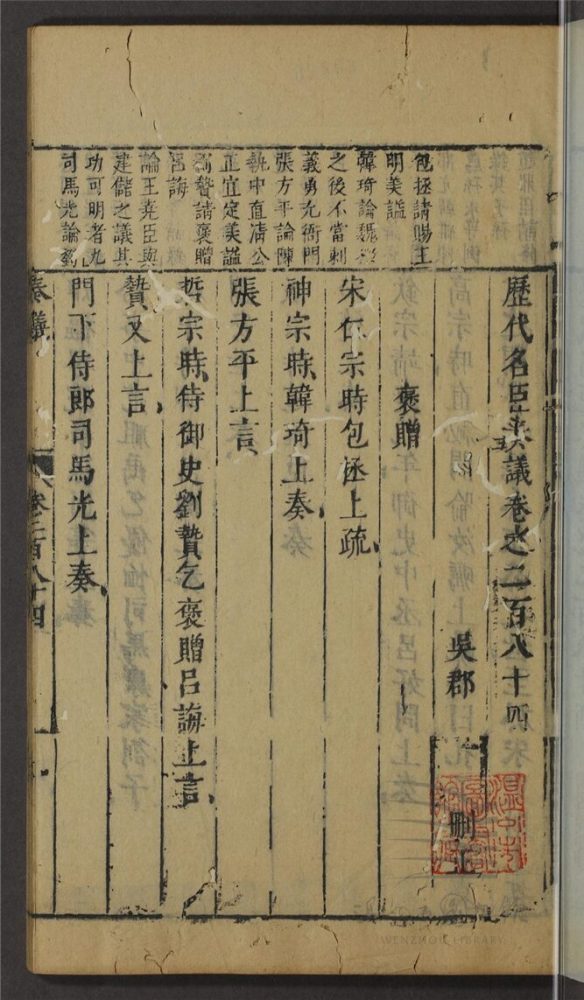 包拯請賜王
明美諡
韓琦論魏
之後不當刺
義勇充衙門
張方平論陳
執中直清公
正宜定美諡
劉贄請褒贈
呂誨
論王堯臣與
建儲之議其
功可明者九
司馬光論劉
歷代名臣奏議卷之二百八十四
吳郡
刪正
褒贈
宋仁宗時包拯上疏
神宗時韓琦上奏
張方平上言
哲宗時侍御史劉贄乞褒贈呂誨上言
贄又上言
門下侍郎司馬光上奏
奏議
卷二百八十四
WENZHOU LIBRARY